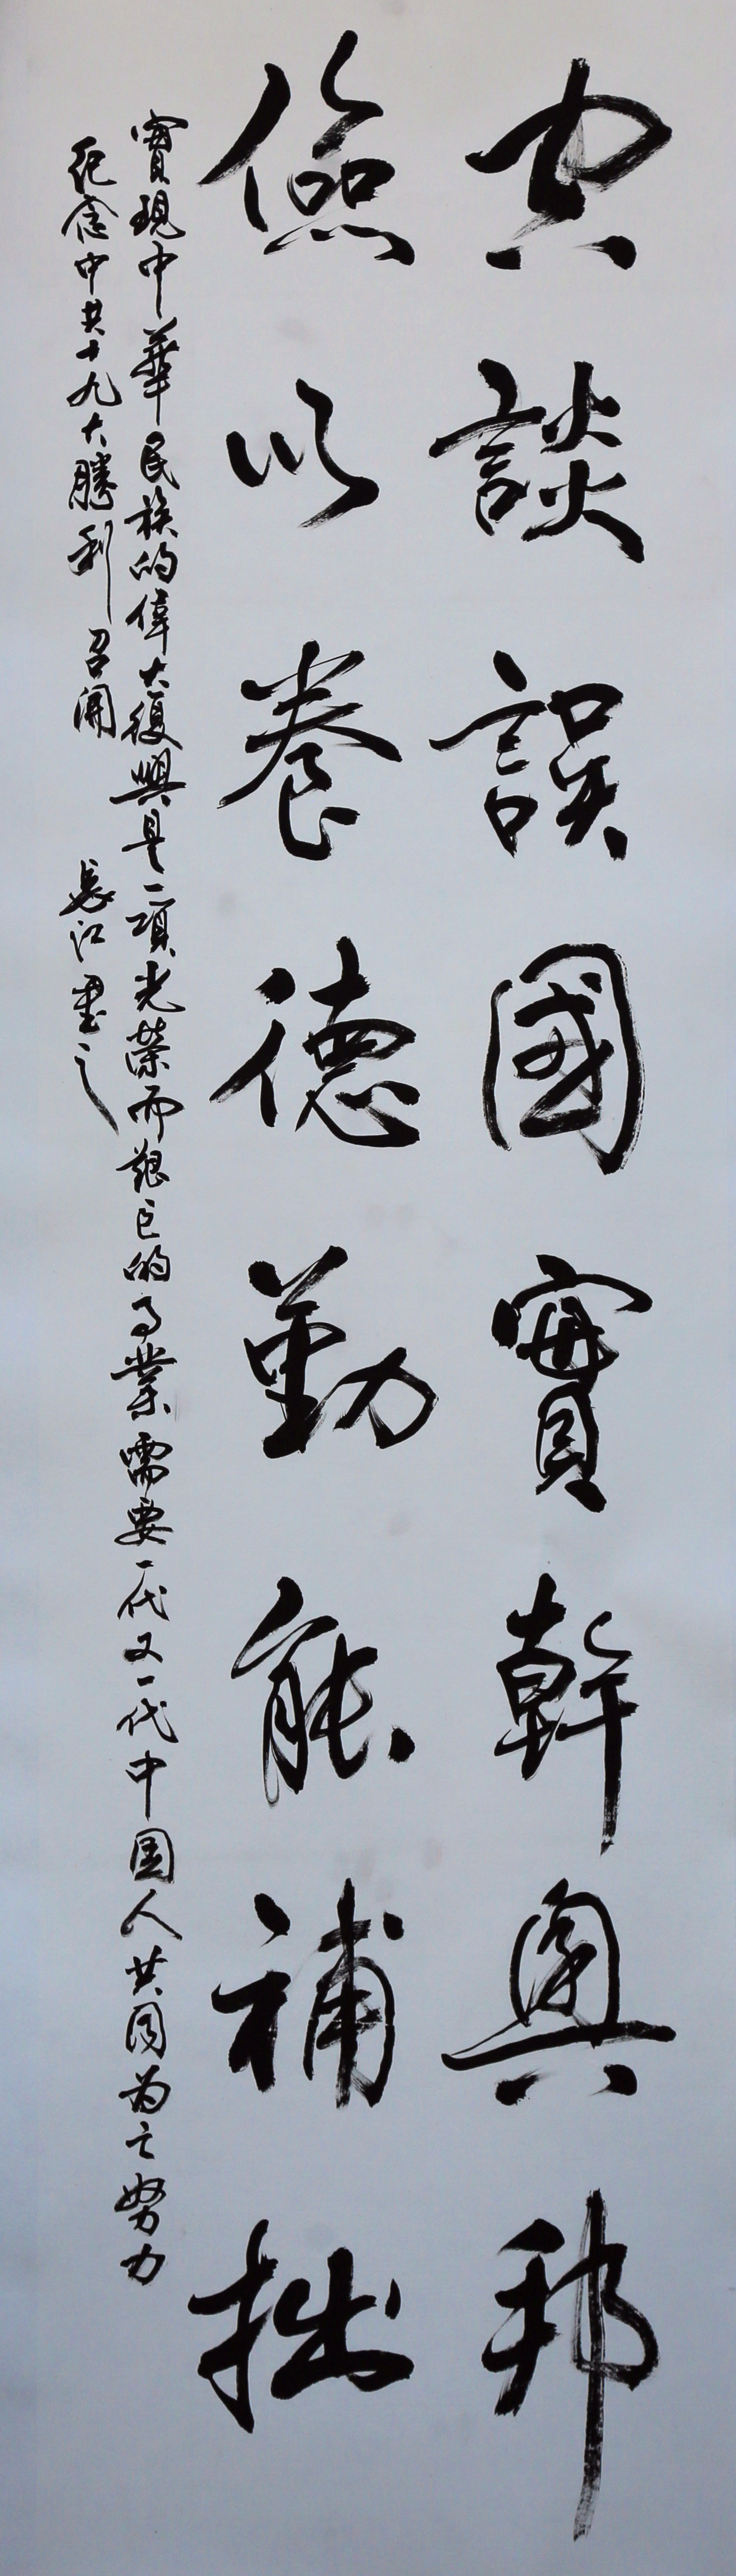 空談誤國實幹興邦
儉以養德勤能補拙
實現中華民族的偉大復興是一項光榮而艱巨的事業需要一代又一代中国人共同为之努力
紀念中共十九大勝利召開 長江書之